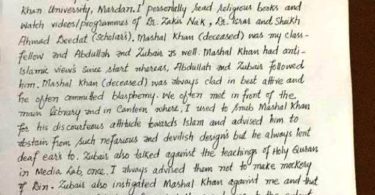 Khan University, Mardan. I personally read religious books and
watch videos/programmes of Dr. Zakir Naik, Dr. Israr and Shaikh
Ahmad Deedat (Scholars). Mashal Khan (deceased) was my class-
fellow and Abdullah and Zubair as well. Mashal Khan had anti-
Islamic views since start whereas, Abdullah and Zubair followed
him. Mashal Khan (deceased) was always clad in best attire and
he often commuted blasphemy. We often met in front of the
main library and in Canteen where, I used to snub Mashal Khan
for his discourteous attitude towards Islam and advised him to
abstain from such nefarious and devilish designs but he always lent
deaf ears to. Zubair also talked against the teachings of Holy Quran
in Media Lab, once. I always advised them not to make mockery
of Zubair also instigated Mashal Khan against me and